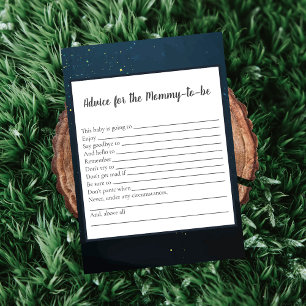 Advice for the Mommy-to-be
This baby is going to
Enjoy
Say goodbye to
And hello to
Remember
Don't try to
Don't get mad if
Be sure to
Don't panic when
Never, under any circumstances,
And, above all